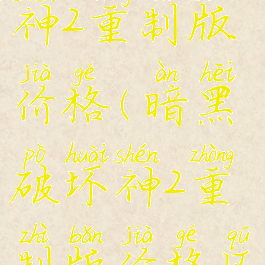 神2重制版
jià ge àn hēi
价格(暗黑
pò huài shén zhòng
破坏神2重
zhì bǎn jià ge qū
制版价格区